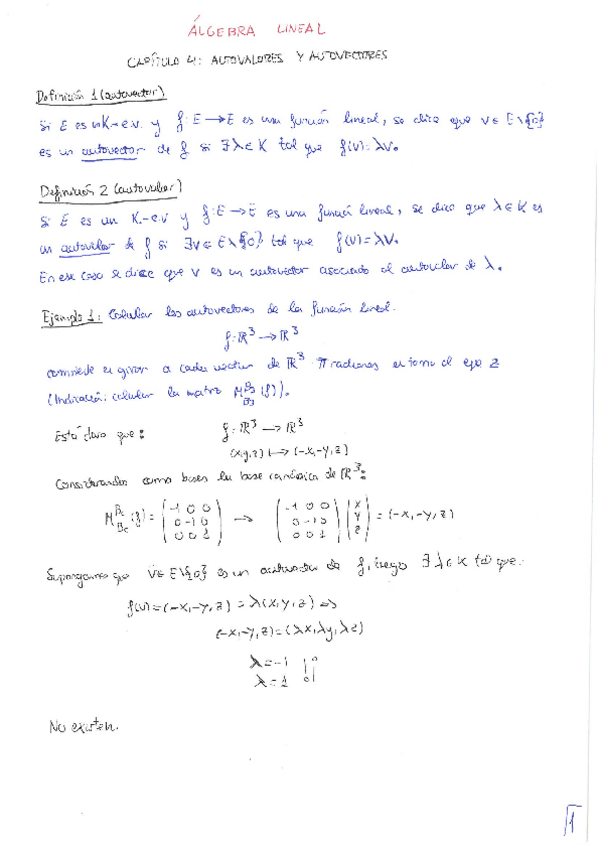 ÁLGEBRA LINEAL
CAPÍTULO 4: AUTOVALORES Y AUTOVECTORES
Definición 1 (autovector)
Si E es un K-e.v. y f:E→E es una función lineal, se dice que v∈E\{0}
es un autovector de f si ∃λ∈K tal que f(v)=λv.
Definición 2 (autovalor)
Si E es un K-e.v y f:E→E es una función lineal, se dice que λ∈K es
un autovalor de f si ∃v∈E\{0} tal que f(v)=λv.
En ese caso se dice que v es un autovector asociado al autovalor de λ.
Ejemplo 1: Calcular los autovectores de la función lineal.
f:ℝ³→ℝ³
consistente en girar a cada vector de ℝ³ π radianes en torno al eje z
(Indicación: calcular la matriz (f)).
Está claro que:
f:ℝ³→ℝ³
(x,y,z)↦(-x,-y,z)
Considerando como bases la base canónica de ℝ³:
M^{Bc}_{Bc}(f) = (-1 0 0 / 0 -1 0 / 0 0 1) → (-1 0 0 / 0 -1 0 / 0 0 1)(x / y / z) = (-x,-y,z)
Supongamos que v∈E\{0} es un autovector de f, luego ∃λ∈K tal que:
f(v)=(-x,-y,z)=λ(x,y,z)⇒
(-x,-y,z)=(λx,λy,λz)
λ=-1
λ=1
No existen.
1